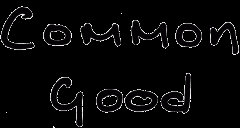 Common
Good